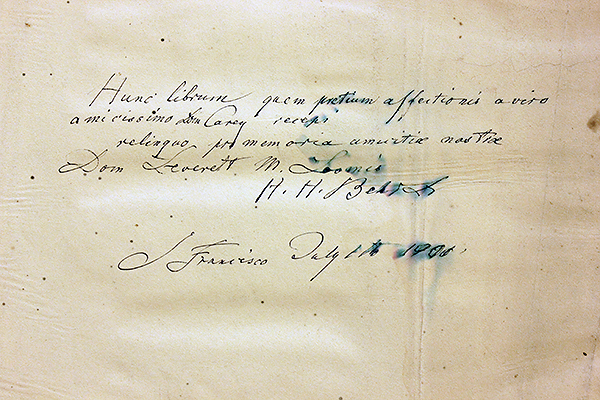 Hunc librum quem pretium affectionis a viro
amicissimo Dom Carey recepi
relinquo pro memoria amicitiæ nostræ
Dom Leverett M. Loomis
H. H. Behr
S Francisco July 1900